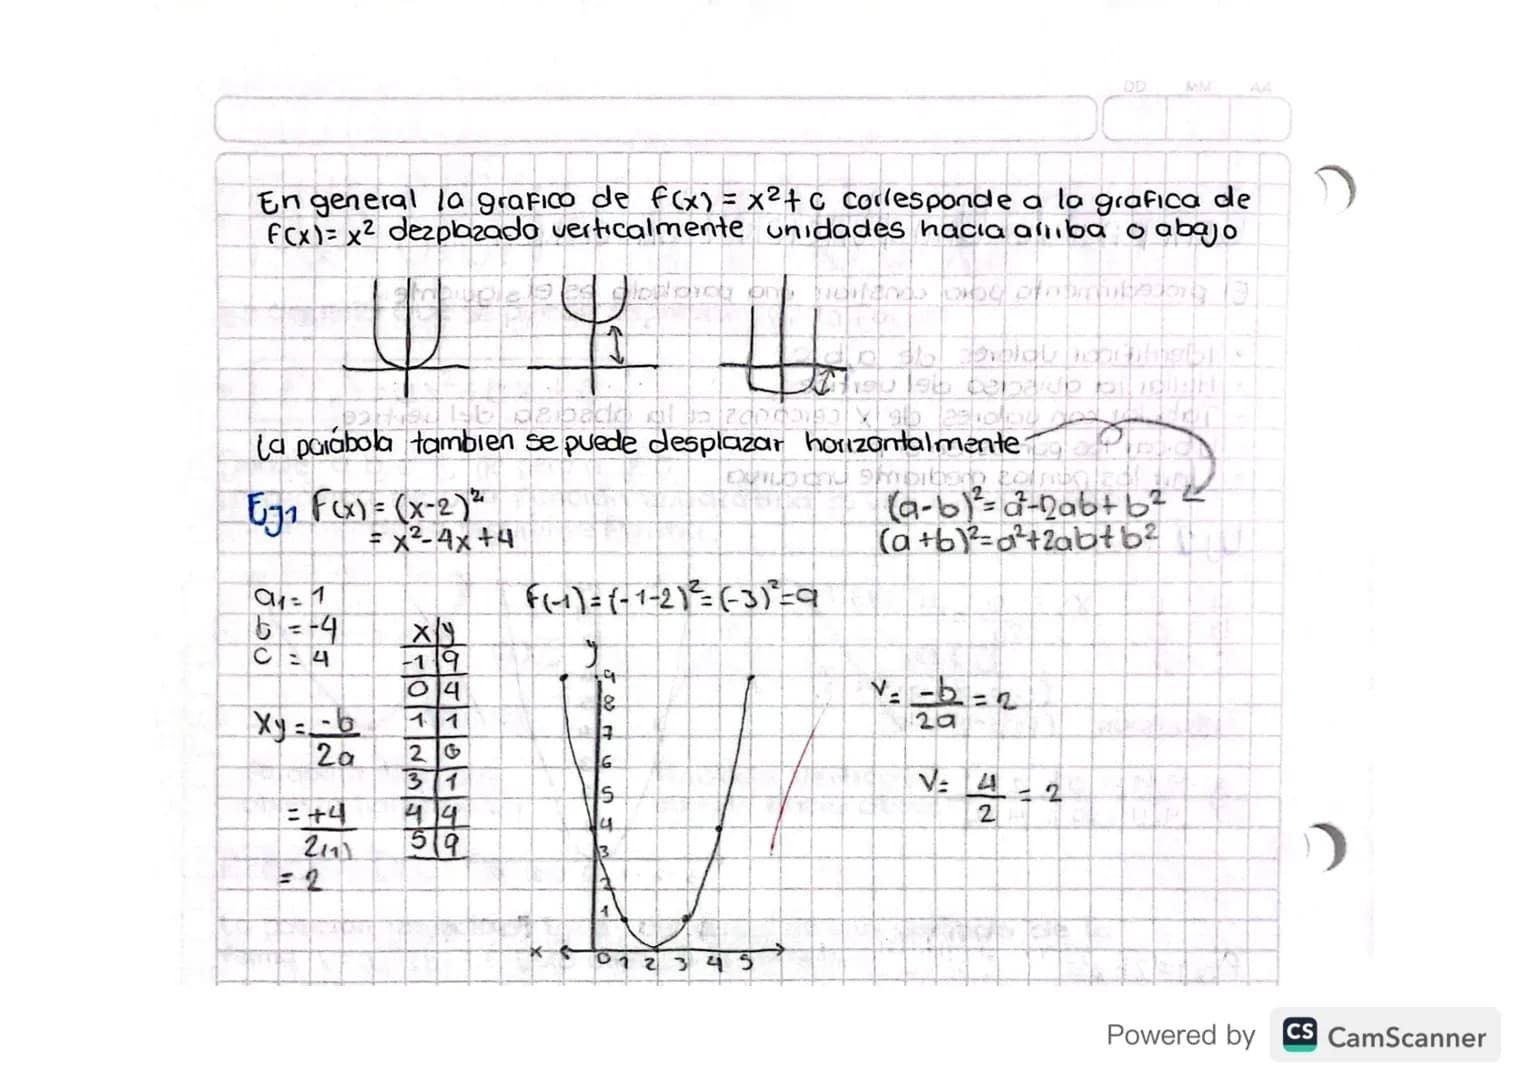 DD MM AA
En general la grafico de f(x) = x²+ c corresponde a la grafica de
f(x)= x² dezplazado verticalmente unidades hacia arriba o abajo
La parábola tambien se puede desplazar horizontalmente
Ej1 F(x) = (x-2)²
= x²-4x+4
(a-b)²= a²-2ab+b²
(a+b)²=a²+2ab+b²
a1= 1
b = -4
c = 4
f(-1)=(-1-2)²=(-3)²=9
x y
-1 9
0 4
1 1
2 0
3 1
4 4
5 9
Xy = -b
2a
= +4
2(1)
= 2
y
9
8
7
6
5
4
3
2
1
x 0 1 2 3 4 5
V= -b = 2
2a
V= 4 = 2
2
Powered by CS CamScanner